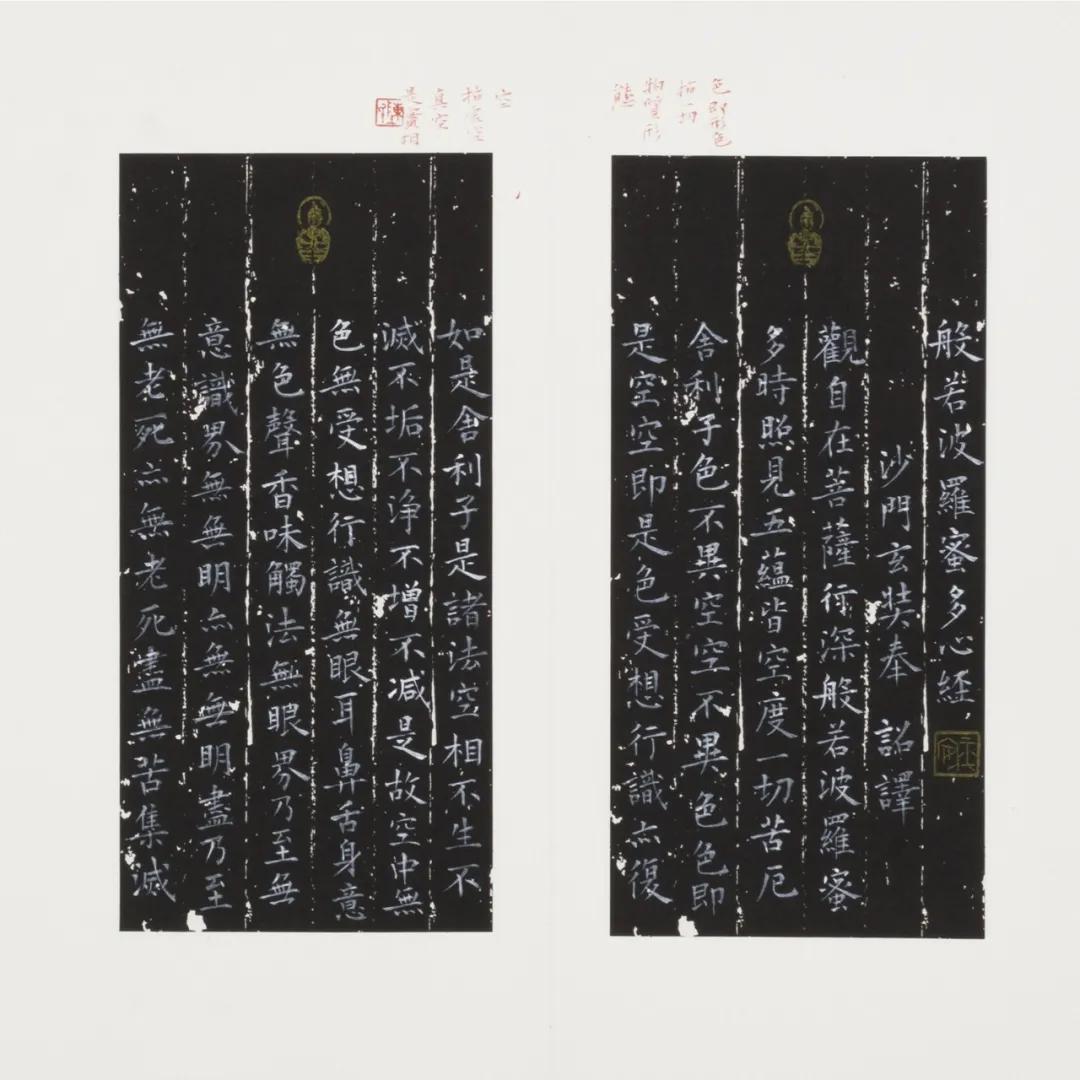 色即形色
指一切
物質形
態
般若波羅蜜多心経
沙門玄奘奉 詔譯
觀自在菩薩行深般若波羅蜜
多時照見五蘊皆空度一切苦厄
舍利子色不異空空不異色色即
是空空即是色受想行識亦復
空
真空
是實相
如是舍利子是諸法空相不生不
滅不垢不浄不增不減是故空中無
色無受想行識無眼耳鼻舌身意
無色聲香味觸法無眼界乃至無
意識界無無明亦無無明盡乃至
無老死亦無老死盡無苦集滅